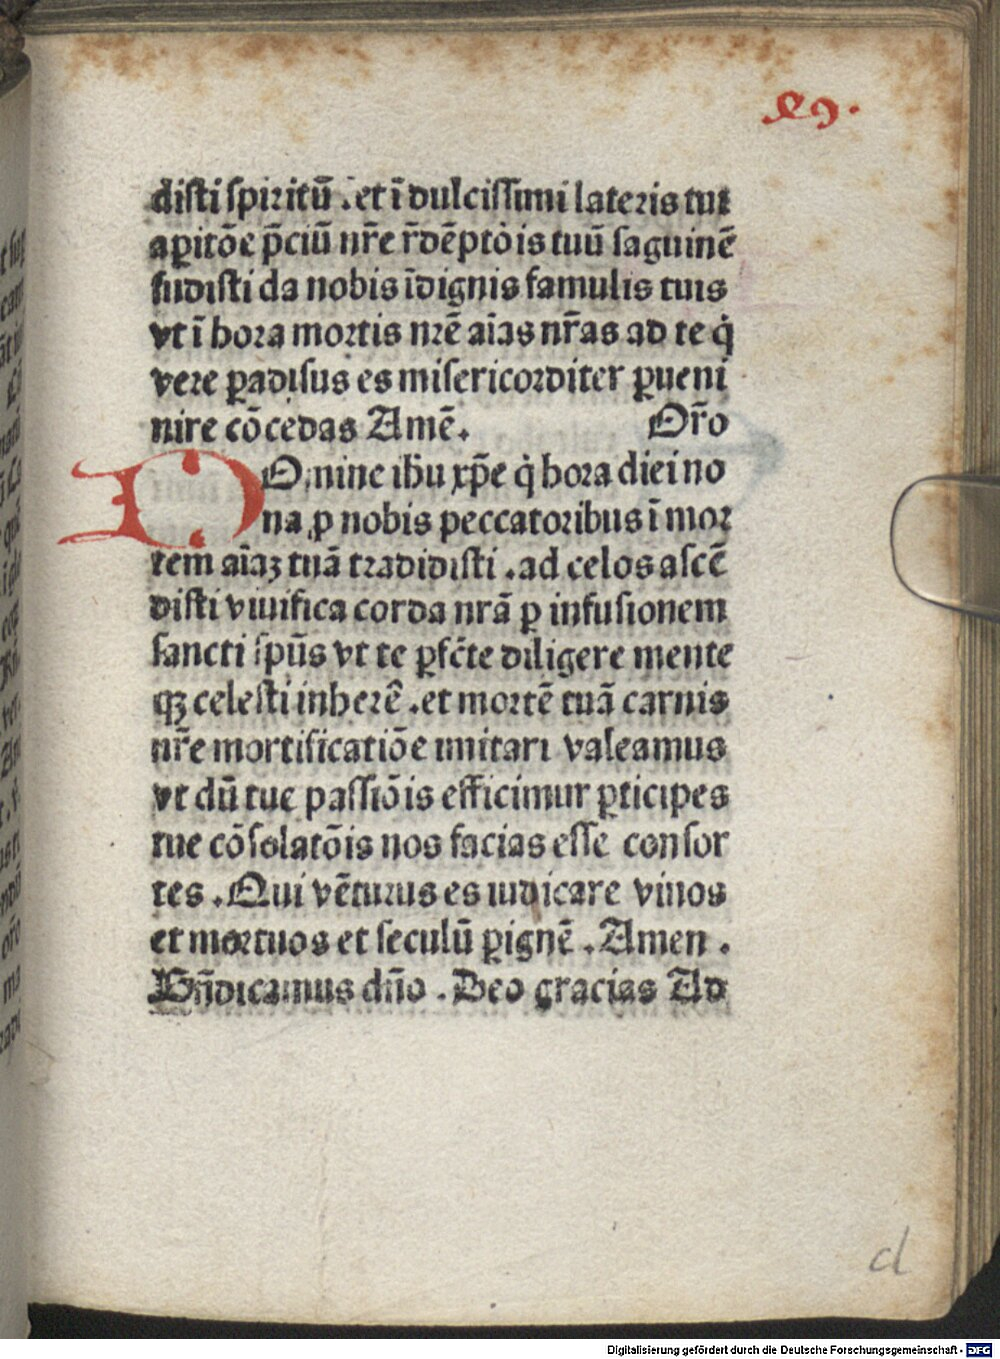 disti spiritū .et ī dulcissimi lateris tui
aꝑitōe p̄ciū nr̄e r̄dēptōis tuū saguinē
fudisti da nobis īdignis famulis tuis
vt ī hora mortis nrē aīas nr̄as ad te q̇
vere ꝑadisus es misericorditer ꝑueni
nire cōcedas Amē. Or̄o
DOmine ihū xp̄e q̇ hora diei no
na ꝓ nobis peccatoribus ī mor
tem aīaꝫ tuā tradidisti .ad celos ascē
disti viuifica corda nrā ꝑ infusionem
sancti spūs vt te ꝑfc̄te diligere mente
qꝫ celesti inherē .et mortē tuā carnis
nr̄e mortificatiōe imitari valeamus
vt dū tue passiōis efficimur ꝑticipes
tue cōsolatōis nos facias esse consor
tes .Qui vēturus es iudicare viuos
et mortuos et seculū ꝑignē .Amen .
Bn̄dicamus dn̄o .Deo gracias Ad
d
Digitalisierung gefördert durch die Deutsche Forschungsgemeinschaft - DFG